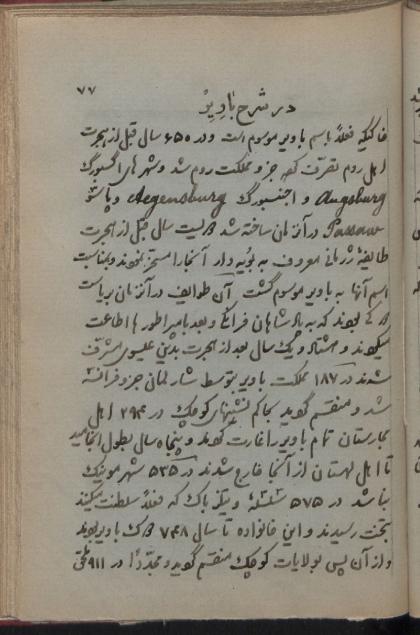 ۷۷
در شرح باویر
خاکیکه فعلاً باسم باویر موسوم است و در ۶۵۰ سال قبل از هجرت
اهل روم تصرف کرده جزو مملکت روم شد و شهرهای اگسبورگ
Augsburg و Regensburg و پاسو
Passau در آنزمان ساخته شد دویست سال قبل از هجرت
طایفهٔ ژرمانی معروف به بویه وار آنجا را مسخر نمودند و بمناسبت
اسم آنها به باویر موسوم گشت آن طوایف در آنزمان بریاست
دوکی بودند که به پادشاهان فرانک و بعد بامپراطورها اطاعت
میکردند و هشتاد و یک سال بعد از هجرت بدین عیسوی مشرف
شدند در ۱۸۷ مملکت باویر بتوسط شارلمان جزو فرانسه
شد و منقسم گردید بحاکم نشینهای کوچک در ۲۹۴ اهل
مجارستان تمام باویر را غارت کردند و پنجاه سال بطول انجامید
تا اهل لهستان از آنجا خارج شدند در ۵۳۵ شهر مونیک
بنا شد در ۵۷۵ سلسلهٔ ویتلزباک که فعلاً سلطنت میکنند
بتخت رسیدند و این خانواده تا سال ۷۴۸ دوک باویر بودند
و از آن پس بولایات کوچک منقسم گردید و مجدداً در ۹۱۱